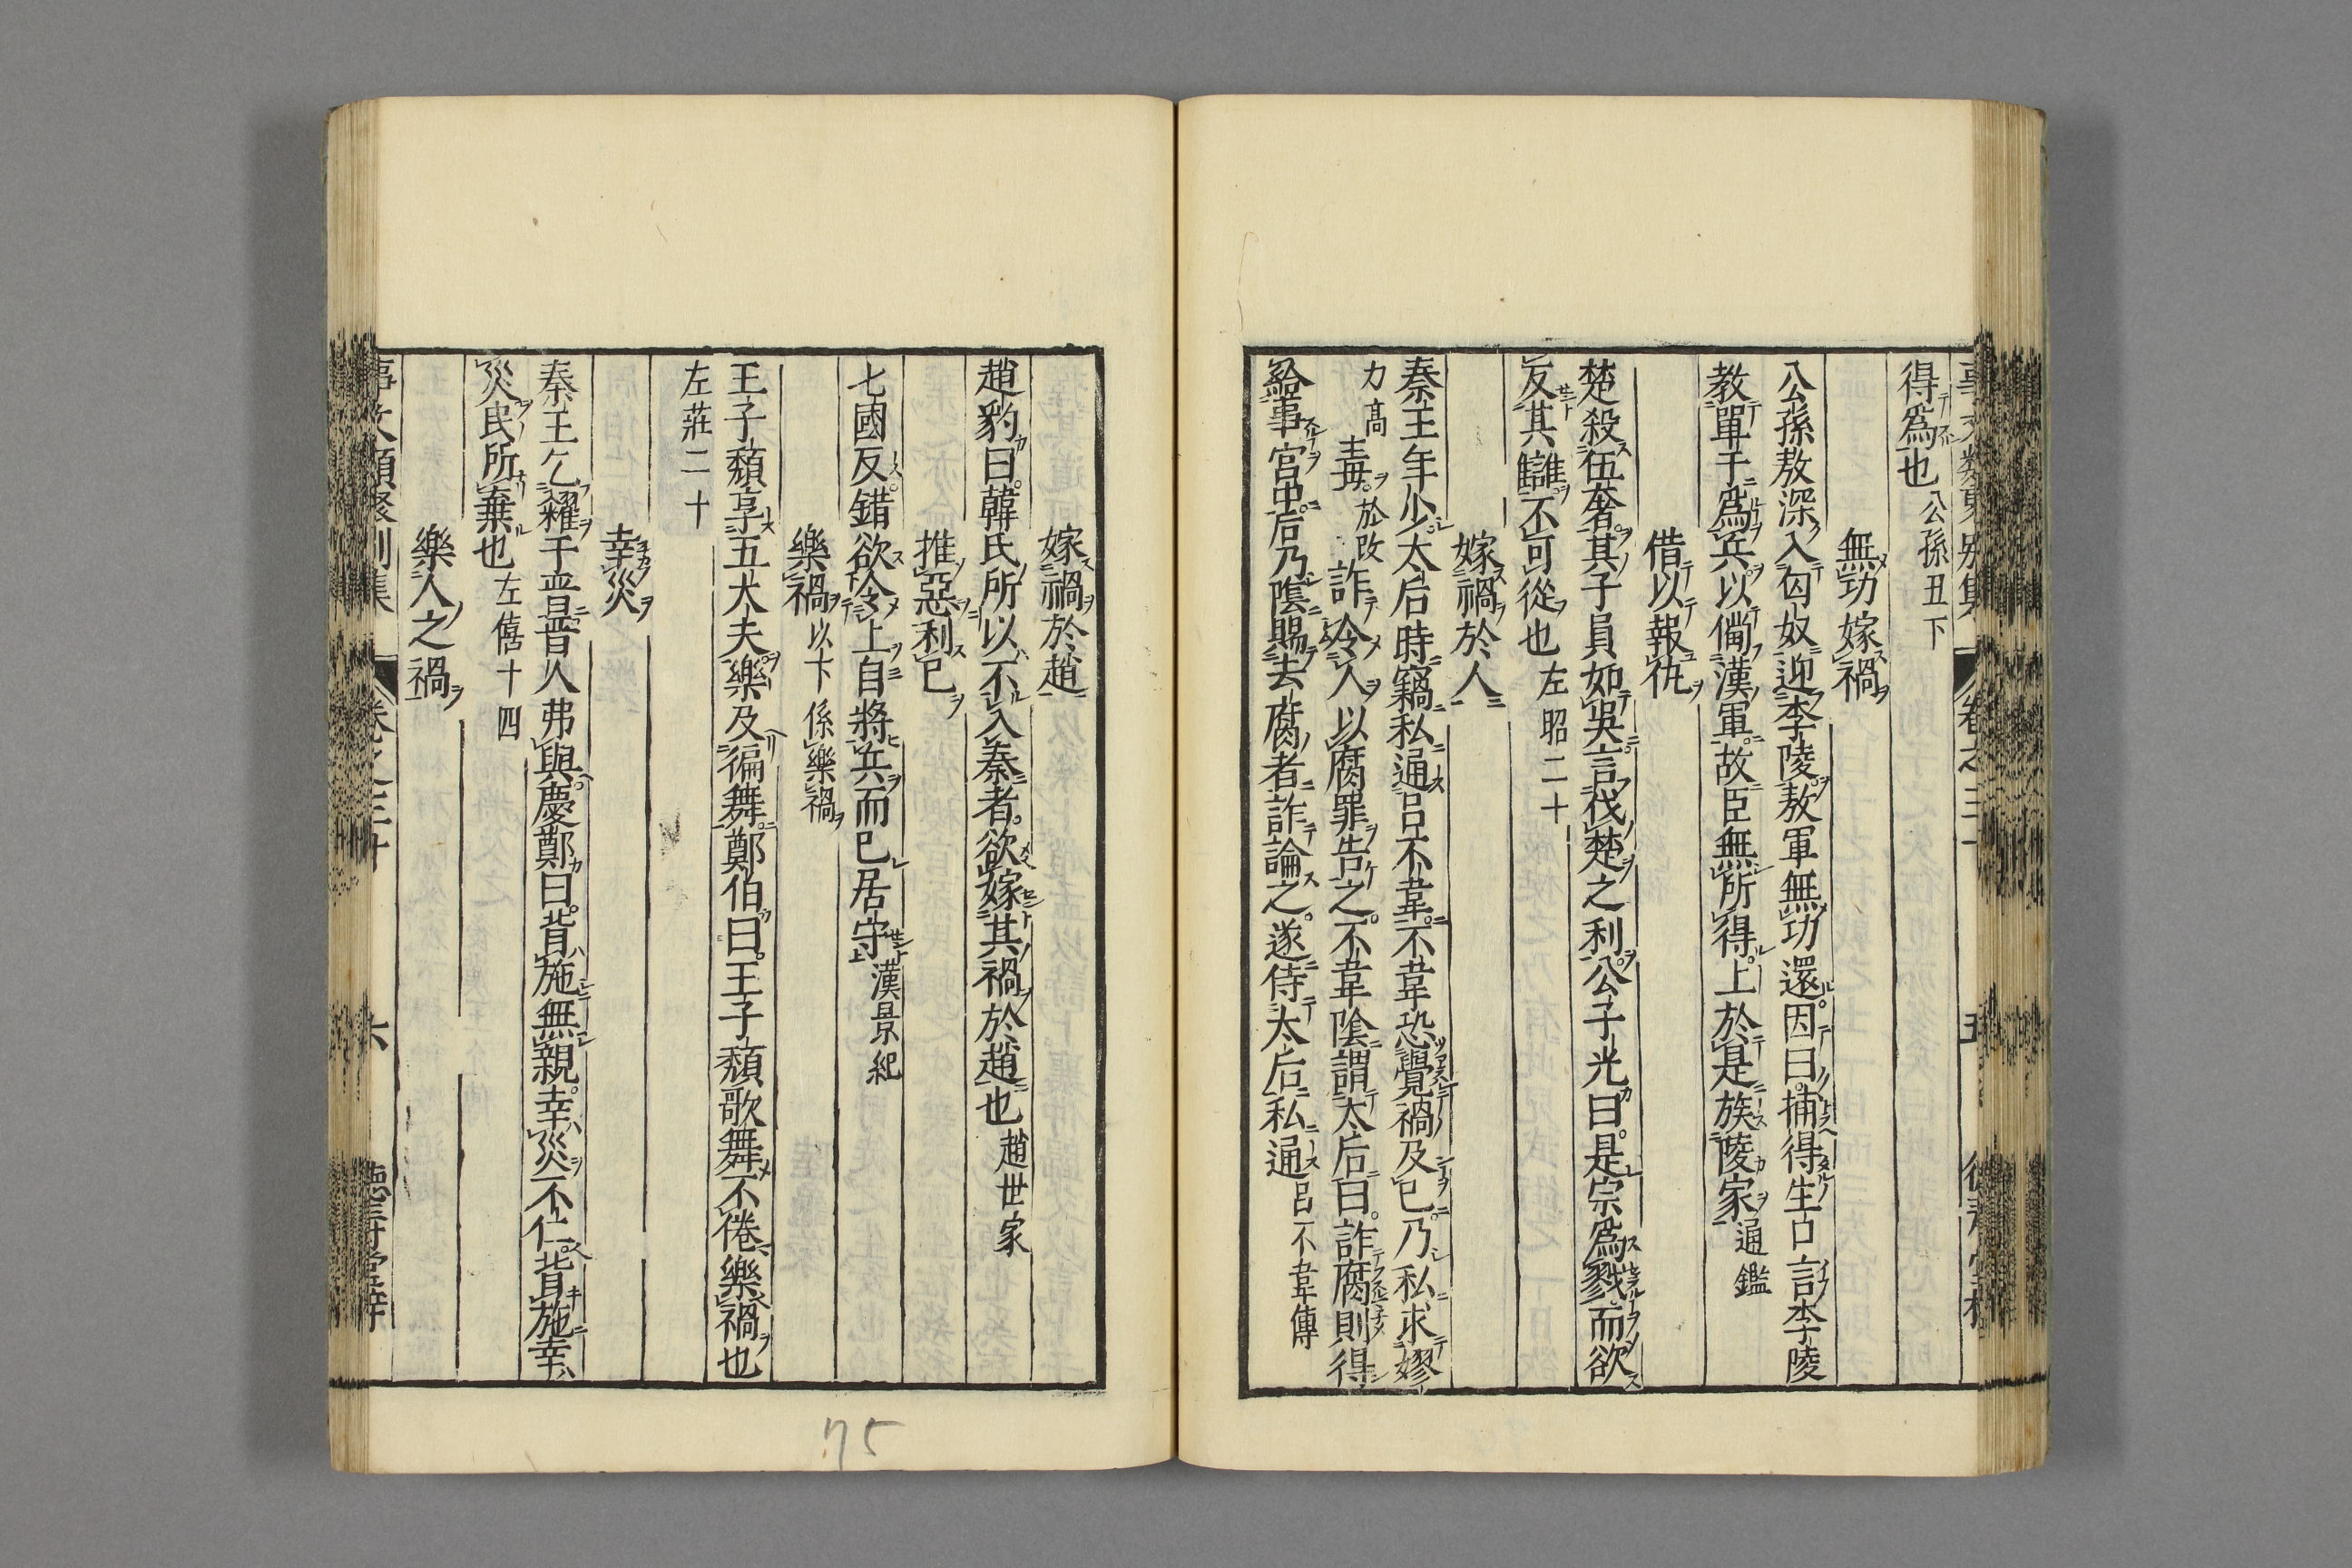 得爲也公孫丑下
無功嫁禍
公孫敖深入匈奴迎李陵敖軍無功還因曰捕得生口言李陵
教單于爲兵以備漢軍故臣無所得上於是族陵家通鑑
借以報仇
楚殺伍奢其子員如吳言伐楚之利公子光曰是宗爲戮而欲
反其讎不可從也左昭二十
嫁禍於人
秦王年少太后時竊私通呂不韋不韋恐覺禍及已乃私求嫪
力高毒於改詐令人以腐罪告之不韋陰謂太后曰詐腐則得
給事宮中后乃陰賜去腐者詐論之遂侍太后私通呂不韋傳
嫁禍於趙
趙豹曰韓氏所以不入秦者欲嫁其禍於趙也趙世家
推惡利已
七國反錯欲令上自將兵而已居守漢景紀
樂禍以下係樂禍
王子頹享五大夫樂及徧舞鄭伯曰王子頹歌舞不倦樂禍也
左莊二十
幸災
秦王乞糴于晉晉人弗與慶鄭曰背施無親幸災不仁背施幸
災民所棄也左僖十四
樂人之禍
事文類聚別集 卷之三十 六
75